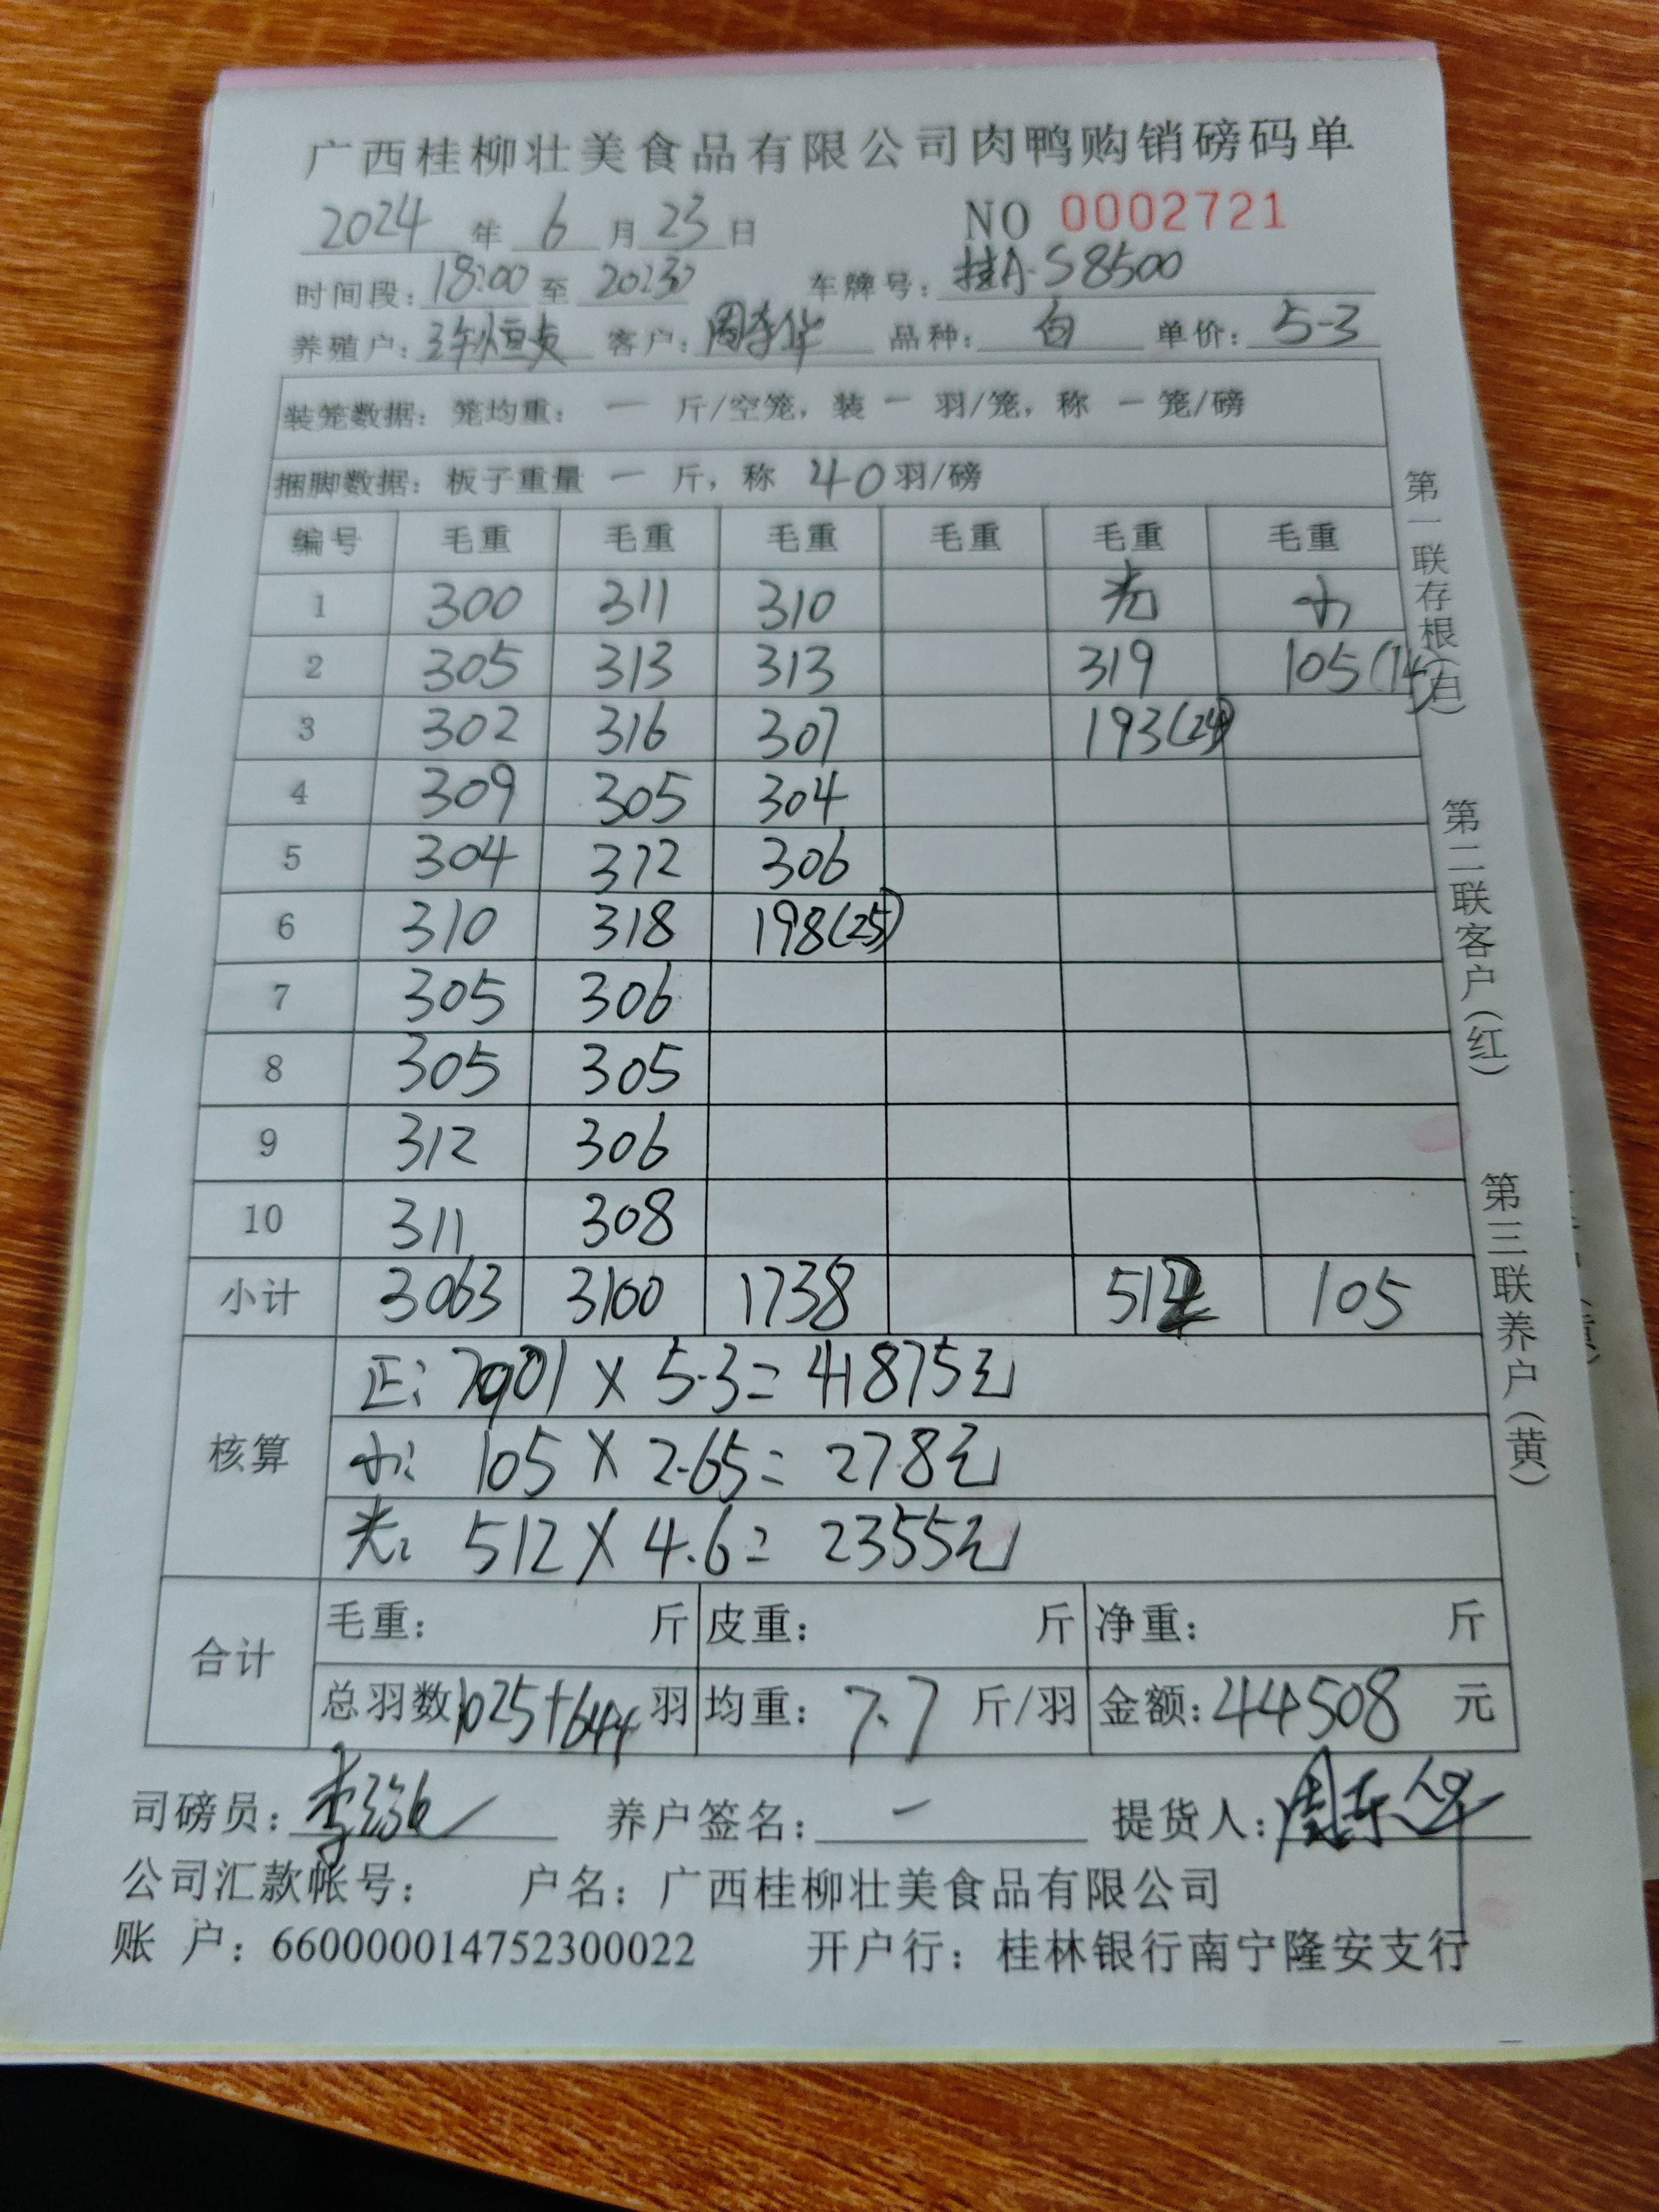 广西桂柳壮美食品有限公司肉鸭购销磅码单
2024 年 6 月 23 日 NO 0002721
时间段: 18:00 至 20:30 车牌号: 桂A·S8500
养殖户: 客户: 周东华 品种: 白 单价: 5.3
装笼数据: 笼均重: 一 斤/空笼, 装 一 羽/笼, 称 一 笼/磅
捆脚数据: 板子重量 一 斤, 称 40 羽/磅
编号 毛重 毛重 毛重 毛重 毛重 毛重
1 300 311 310 光 小
2 305 313 313 319 105(14)
3 302 316 307 193(24)
4 309 305 304
5 304 312 306
6 310 318 198(25)
7 305 306
8 305 305
9 312 306
10 311 308
小计 3063 3100 1738 512 105
核算
正: 7901 × 5.3 = 41875元
小: 105 × 2.65 = 278元
光: 512 × 4.6 = 2355元
合计
毛重: 斤 皮重: 斤 净重: 斤
总羽数 1025+64+ 羽 均重: 7.7 斤/羽 金额: 44508 元
司磅员: 养户签名: 一 提货人: 周东华
公司汇款帐号: 户名: 广西桂柳壮美食品有限公司
账 户: 660000014752300022 开户行: 桂林银行南宁隆安支行
第一联存根(白)
第二联客户(红)
第三联养户(黄)